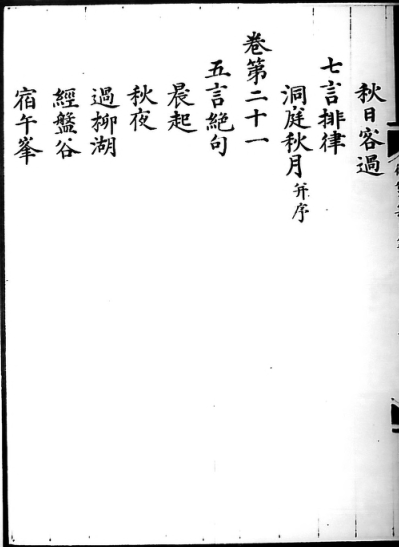 秋日客過
七言排律
洞庭秋月 并序
卷第二十一
五言絕句
晨起
秋夜
過柳湖
經盤谷
宿午峯